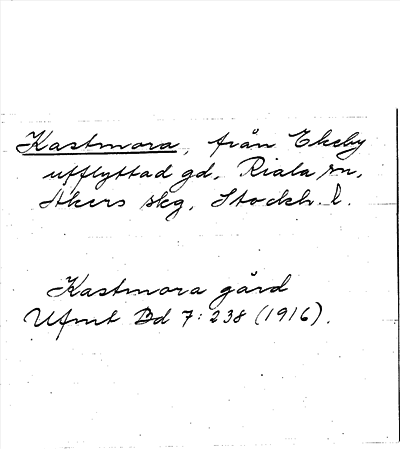 Kastmora, från Ekeby
utflyttad gd, Riala sn,
Åkers skg, Stockh. l.
Kastmora gård
Ufmt Bd 7: 238 (1916).